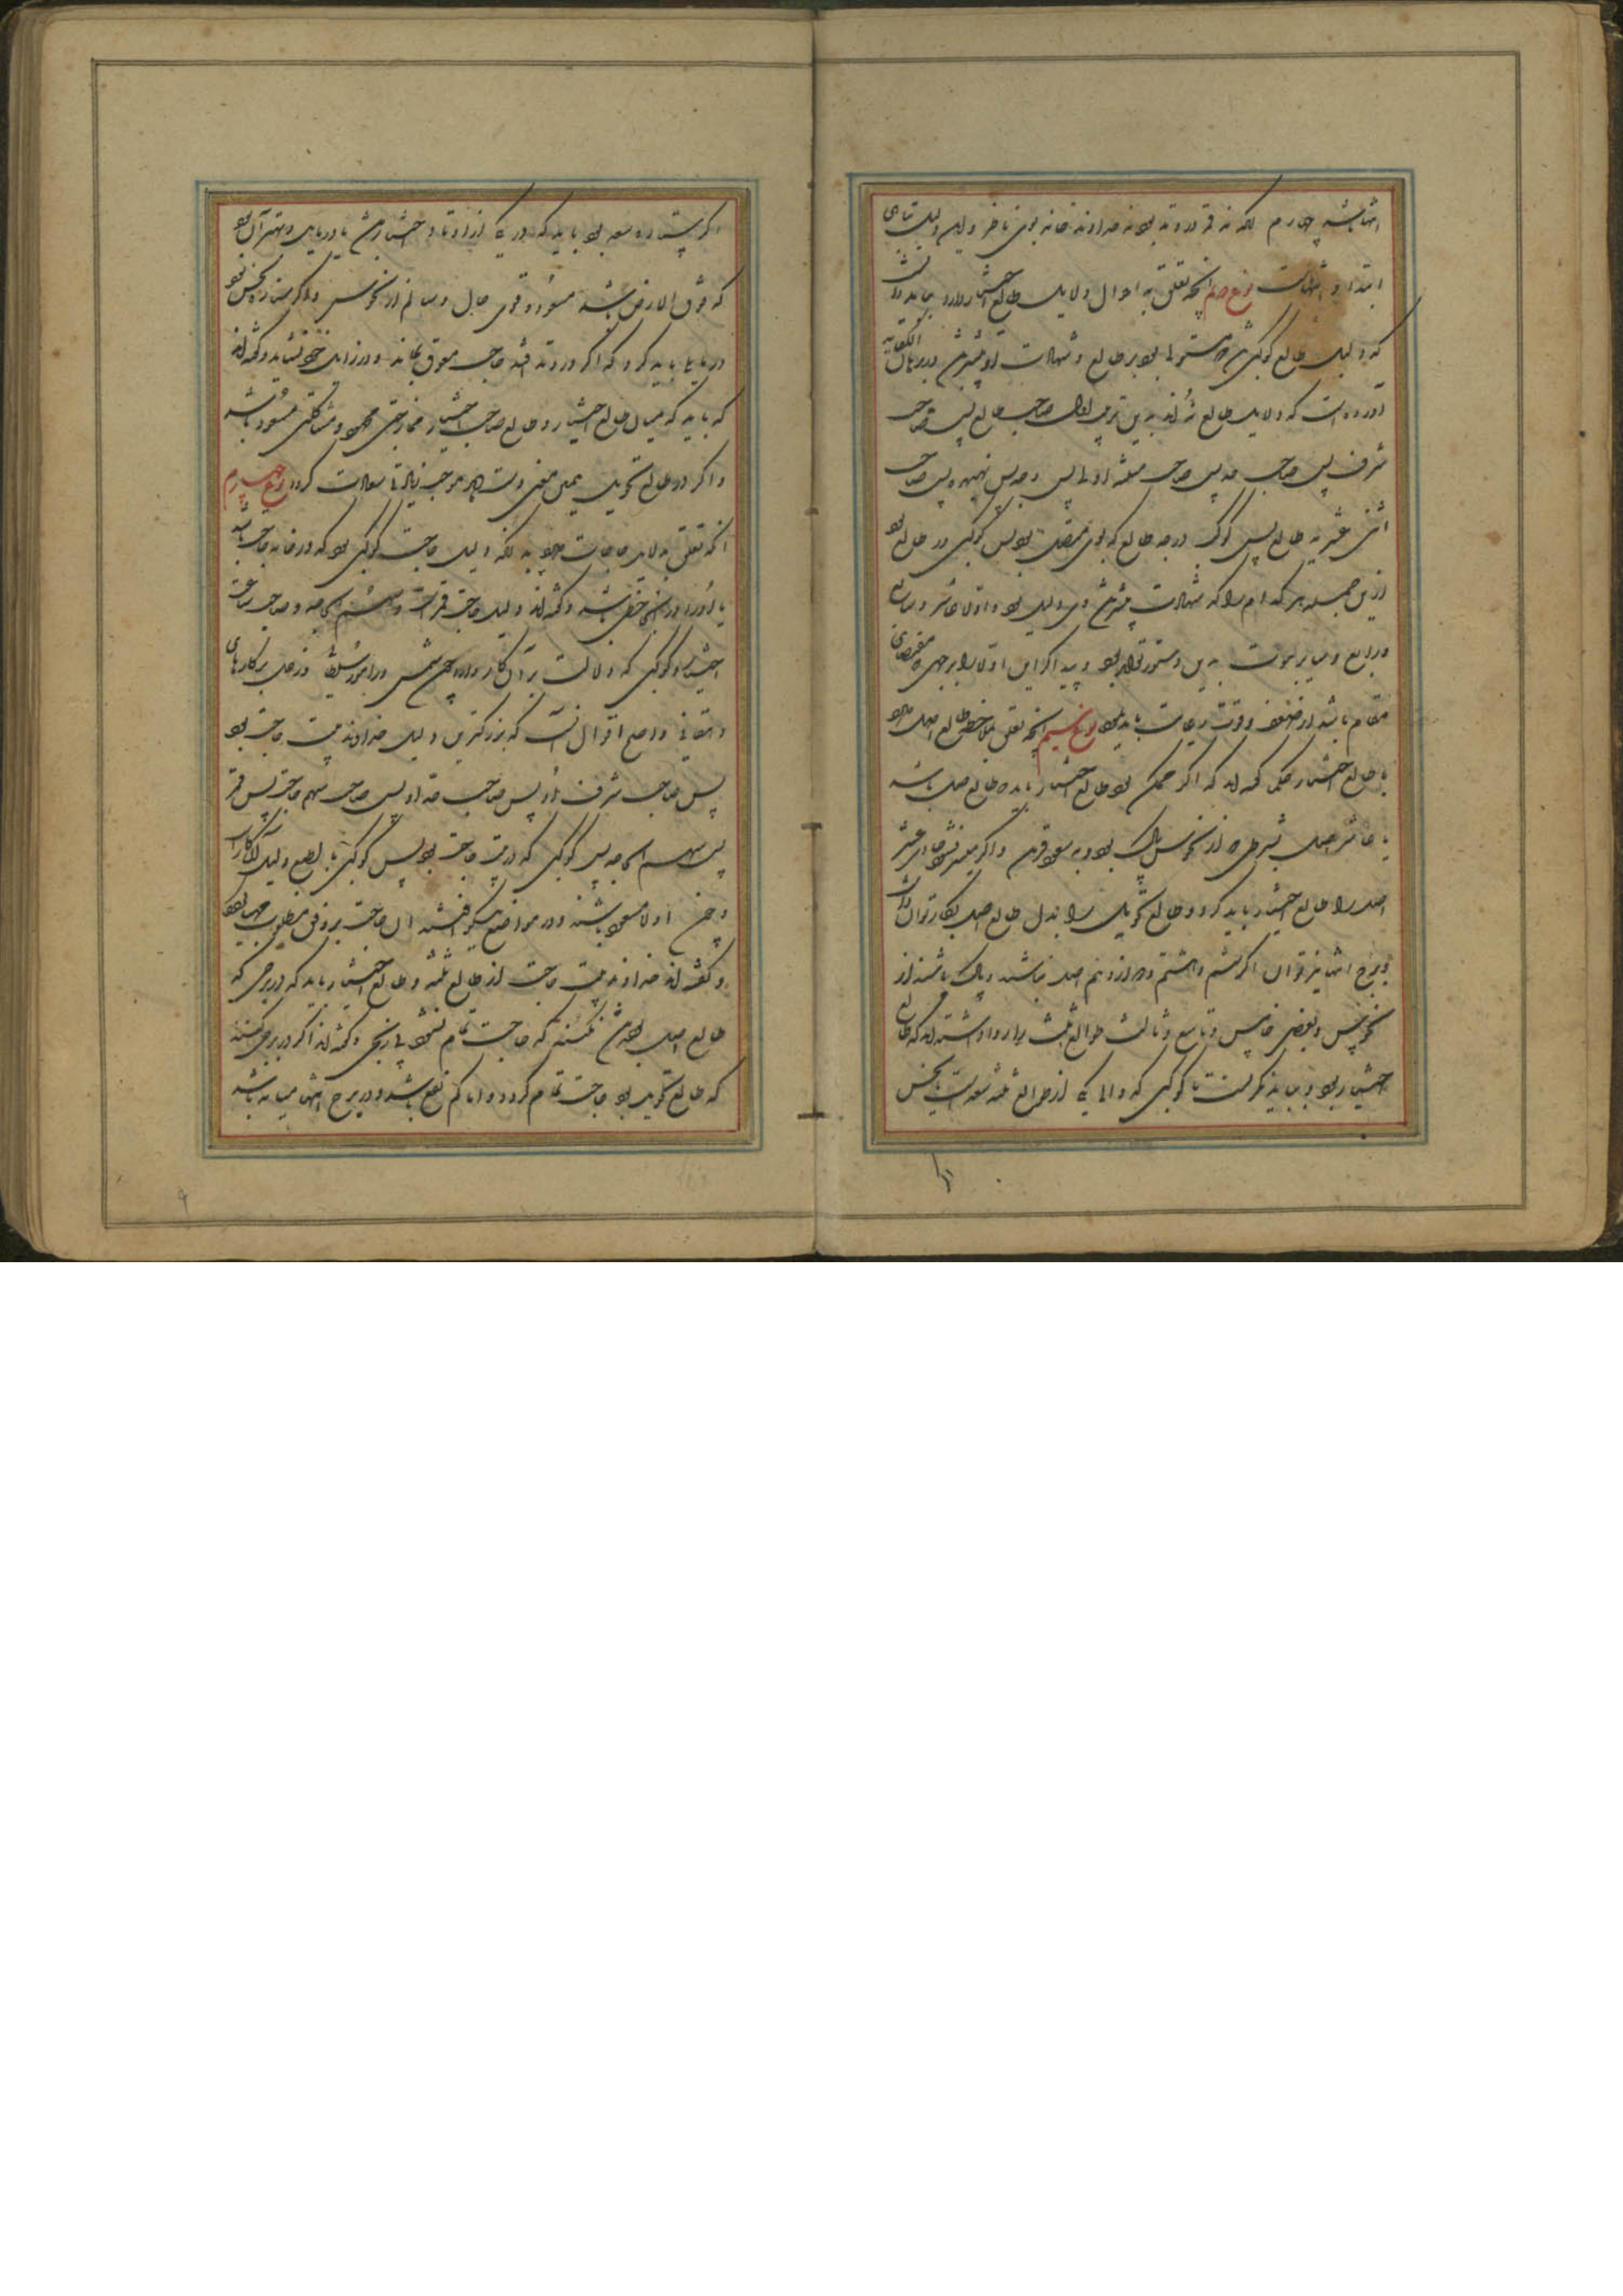 انتها باشد چهارم آنکه نه قمر در وتد بود نه خداوند خانه بوی ناظر و این دلیل تباهی
ابتدا و انتهاست نوع دوم آنچه تعلق به احوال دلایل طالع اختیار دارد بباید دانست
که دلیل طالع کوکبی مستولی بود بر طالع و شهادت او بیشتر
آورده است که دلایل طالع نه اند به این ترتیب اول صاحب طالع پس صاحب
شرف پس صاحب حد پس صاحب مثلثه اول پس وجه پس نهبهر و پس صاحب
اثنی عشریه طالع پس کوکب درجه طالع که بوی متصل بود پس کوکبی در طالع بود
ازین جمله هر کدام را که شهادت بیشتر وی دلیل بود و اوتاد عاشر و سابع
و رابع و سایر بیوت به این دستور تواند بود و پیدا کردن اوتاد را بر جهی که مقتضای
مقام باشد از ضعف و قوت رعایت باید نمود نوع سیم آنچه تعلق بملاحظه طالع اصل دارد
با طالع اختیار حکما گفته اند که اگر ممکن بود طالع اختیار باید که طالع اصل باشد
یا عاشر اصل بشرطی که از نحوس پاک بود و به سعود قرین و اگر میسر نشود حادی عشر
اصل را طالع اختیار باید کرد و طالع تحویل را بدل طالع اصل بکار توان داشت
و برج انتها نیز توان اگر ششم و هشتم و دوازدهم اصل نباشد و پاک باشند از
نحوس و بعضی خامس و تاسع و ثالث طوالع ثلثه را روا داشته اند که طالع
اختیار بود و بباید نگریست تا کوکبی که والی یکی از طوالع ثلثه سعد است یا نحس
اگر ستاره سعد بود باید که در یکی از اوتاد اختیار باشد یا در مایل وتد و بهتر آن بود
که فوق الارض باشد مسعود و قوی حال و سالم از نحوس و اگر ستاره نحس بود
در مایل باید کرد که اگر در وتد افتد حاجت معوق بماند و در زایل خود نشاید و گفته اند
که باید که میان طالع اختیار و طالع صاحب اختیار ممازجتی محمود و مشاکلتی مسعود باشد
و اگر در طالع تحویل همین معنی دست دهد موجب زیادتی سعادت گردد نوع چهارم
آنکه تعلق به دلایل حاجات دارد بدانکه دلیل حاجت کوکبی بود که در خانه حاجت باشد
یا او را در آن خانه حظی باشد و گفته اند دلیل حاجت قمر است و سهم الحاجه و صاحب ساعت
اختیار و کوکبی که دلالت بر آن کار دارد چون شمس در امور سلطان و زحل بر کارهای
دهقانی و اصح اقوال آنست که بزرگترین دلیل خداوند بیت حاجت بود
پس صاحب شرف او پس صاحب حد او پس صاحب سهم حاجت پس قمر
پس سهم الحاجه پس کوکبی که در بیت حاجت بود پس کوکبی بالطبع دلیل آن کار است
و چون ادلا مسعود باشند و در مواضع نیکو افتند آن حاجت بر وفق مطلوب مهیا بود
و گفته اند خداوند بیت حاجت از طالع ثلثه و طالع اختیار باید که در برجی که
طالع اصل بوده باشد نکنند که حاجت تمام نشود بی رنجی و گفته اند اگر در برجی کنند
که طالع تحویل بود حاجت تمام گردد و اما کم نفع باشد و در برج انتها میانه باشد